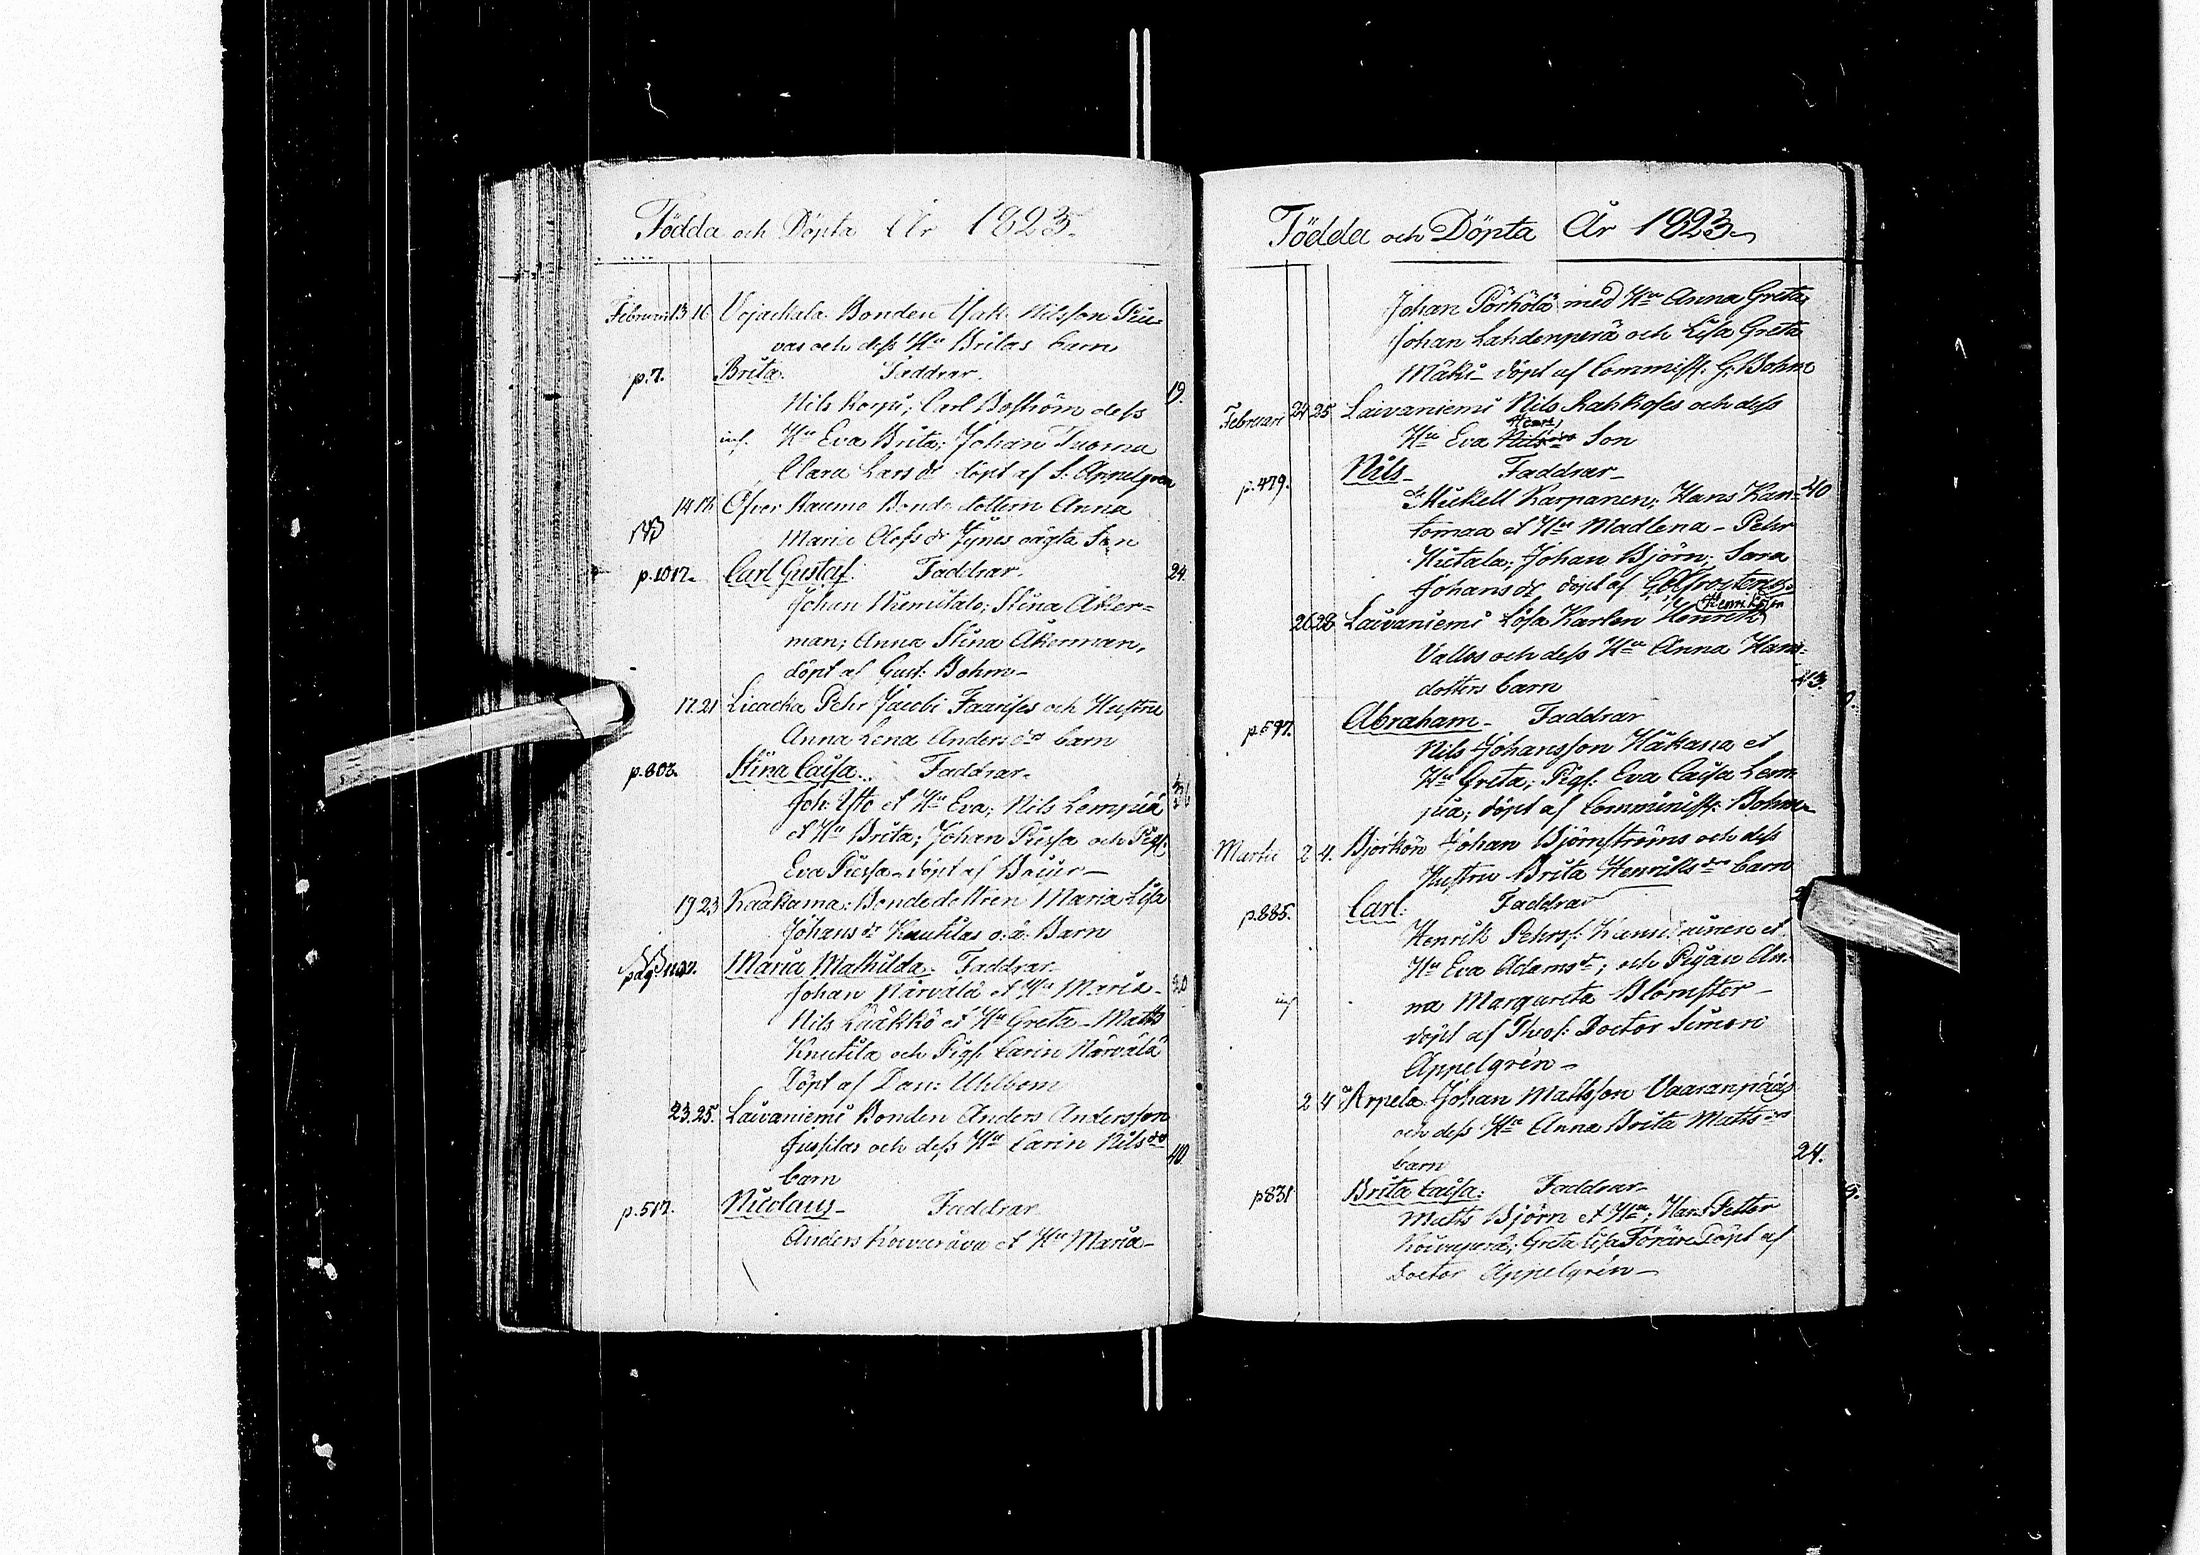 Födda och Döpta År 1823.
Februari 13 16 Vojackala Bonden Isak Nilsson Piu-
vas och dess Hu Britas barn
p.7. Brita. Faddrar. 19.
Nils Korpi; Carl Boström dess
Hu Eva Brita; Johan Tuoma
Clara Larsdr döpt af S. Appelgren
14 16 Öfver Raumo Bondedottern Anna
Maria Olofsdr oägta Son
p.1017. Carl Gustaf. Faddrar. 24.
Johan Niemitalo; Stina Åker-
man; Anna Stina Åkerman,
döpt af Gust: Bohm
17. 21 Liedacka Pehr Jacobi och Hustru
Anna Lena Andersdr barn
p.802. Stina Caisa. Faddrar.
Joh: Ylto et Hu Eva; Nils Lempiä
et Hu Brita; Johan Piessa och Pig:
Eva Piessa döpt af
19 23 Kaakama: Bondedottren Maria Lisa
Johansdr Knutilas o:ä: Barn
Maria Mathilda. Faddrar. 20
Johan Närvälä et Hu Maria
Nils Lääkkö et Hu Greta Matts
Knutila och Pig: Carin Närvälä
Döpt af Dan: Uhlbom
23. 25. Laivaniemi Bonden Anders Andersson
och dess Hu Carin Nilsdr 40.
barn
p.517. Nicolaus Faddrar
Anders et Hu Maria
Födda och Döpta År 1823
Johan Pörhölä med Hu Anna Greta
Johan Lahdenperä och Lisa Greta
Mäki döpt af Commiss: G: Bohm
Februari 24 25 Laivaniemi Nils Rahkoses och dess
Hu Eva Son
p.479. Nils Faddrar 40
Mickell Karpanen; Hans Kan-
tomaa et Hu Madlena Pehr
Hietala; Johan Björn; Sara
Johansdr döpt af
26 28 Laivaniemi Lösa Karlen Henrik
och dess Hu Anna Hans-
dotters barn 43.
p.597. Abraham Faddrar
Nils Johansson Häkana et
Hu Greta; Pig: Eva Caisa Lem-
piä; döpt af Communist: Bohm
Martii 2 4. Björkön Johan Björnströms och dess
Hustru Brita Henriksdr barn
p.885. Carl. Faddrar
Henrik Pehrss: et
Hu Eva Adamsdr; och Pigan An-
na Margareta Blomster
döpt af Theol: Doctor Simon
Appelgrén
2 4 Arpela Johan Mattsson Vaaranpääs
och dess Hu Anna Brita Mattsdr
barn 24.
p831 Brita Caisa: Faddrar
Matts Björn et Hu; Hans Petter
Koivuperä; Greta Lisa Döpt af
Doctor Appelgrén